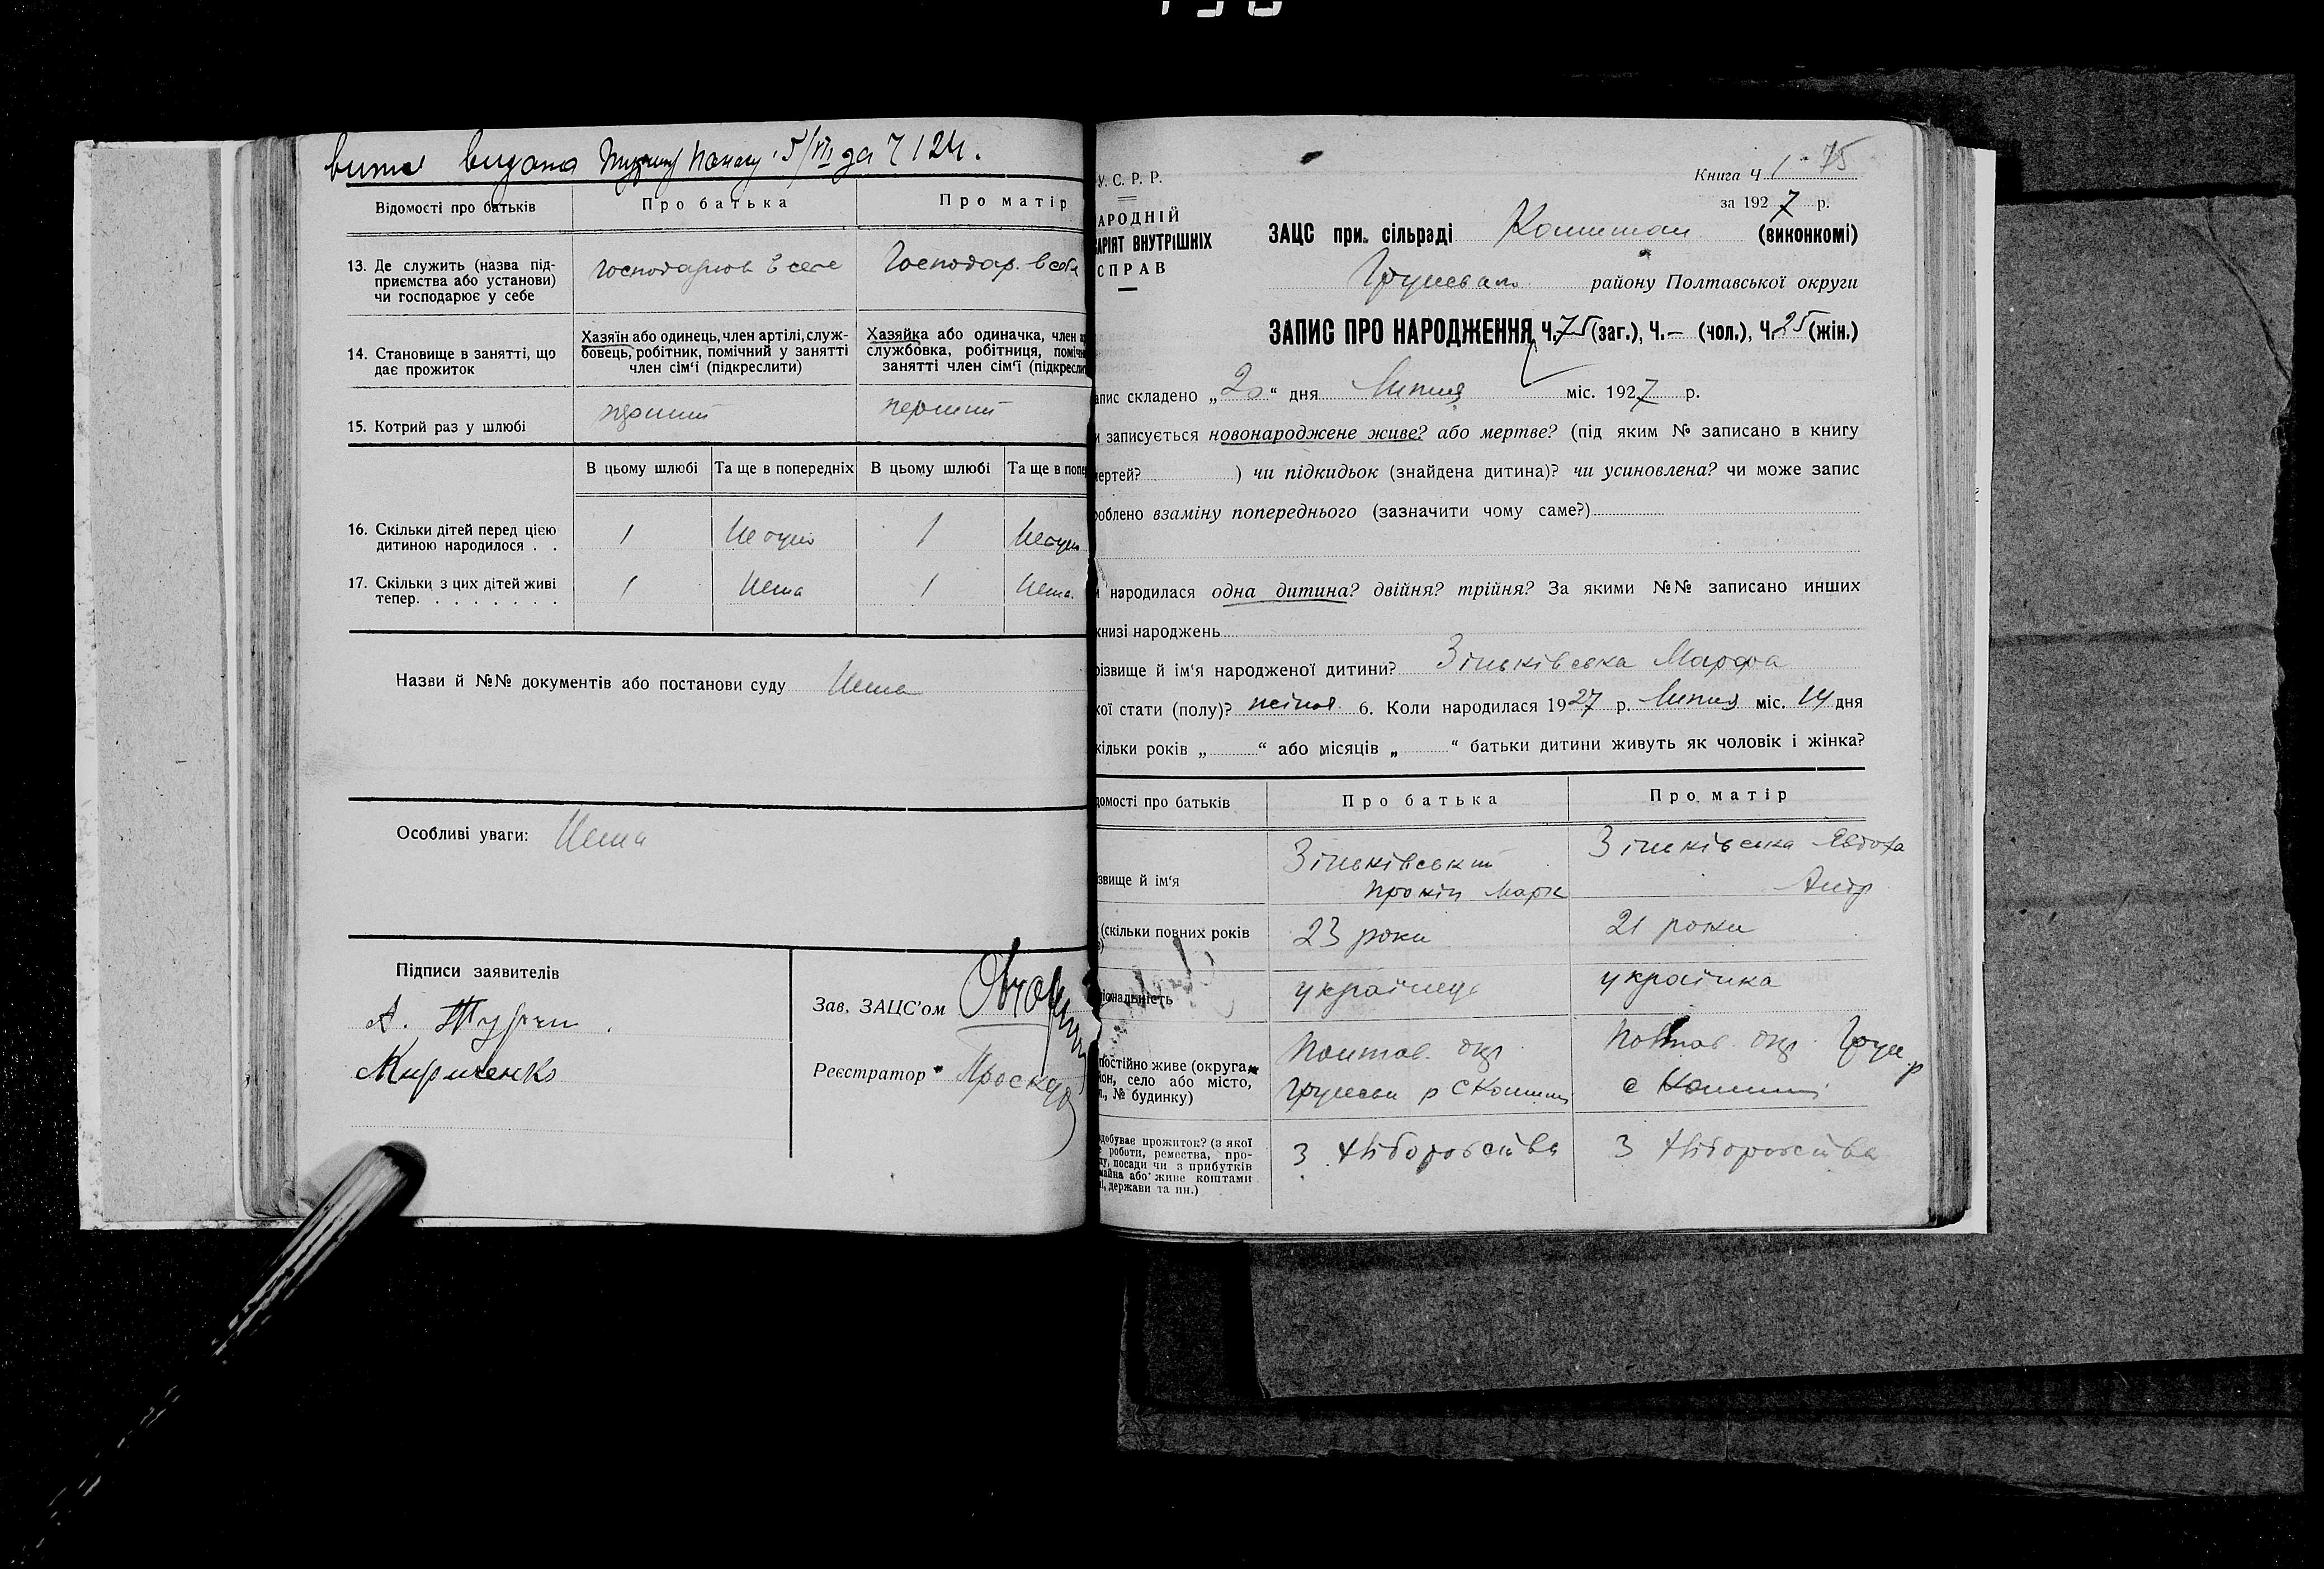 видана 5/VII за 7124.
Відомості про батьків
Про батька
Про матір
13. Де служить (назва під-
приємства або установи)
чи господарює у себе
Господарює в себе
Господар. в себе
14. Становище в занятті, що
дає прожиток
Хазяїн або одинець, член артілі, служ-
бовець, робітник, помічний у занятті
член сім'ї (підкреслити)
Хазяйка або одиначка, член
службовка, робітниця, поміч
занятті член сім'ї (підкресли
15. Котрий раз у шлюбі
перший
перший
В цьому шлюбі
Та ще в попередніх
В цьому шлюбі
Та ще в попе
16. Скільки дітей перед цією
дитиною народилося . .
1
Не було
1
Не було
17. Скільки з цих дітей живі
тепер. . . . . . . .
1
Нема
1
Нема.
Назви й №№ документів або постанови суду Нема
Особливі уваги: Нема
Підписи заявителів
А.
Кириченко
Зав. ЗАЦС'ом
Реєстратор
У. С. Р. Р.
АРОДНІЙ
АРІЯТ ВНУТРІШНІХ
СПРАВ
Книга Ч 1 75
за 1927 р.
ЗАЦС при. сільраді (виконкомі)
району Полтавської округи
ЗАПИС ПРО НАРОДЖЕННЯ Ч.75 (заг.), Ч.— (чол.), Ч.25 (жін.)
апис складено „20“ дня Липня міс. 1927 р.
и записується новонароджене живе? або мертве? (під яким № записано в книгу
мертей? ) чи підкидьок (знайдена дитина)? чи усиновлена? чи може запис
роблено взаміну попереднього (зазначити чому саме?)
и народилася одна дитина? двійня? трійня? За якими №№ записано инших
книзі народжень
різвище й ім'я народженої дитини? Зіньківська Марфа
кої стати (полу)? жіноч. 6. Коли народилася 1927 р. Липня міс. 14 дня
кільки років „ “ або місяців „ “ батьки дитини живуть як чоловік і жінка?
домості про батьків
Про батька
Про матір
звище й ім'я
Зіньківський
Прокіп Марк
Зіньківська Явдоха
Андр
(скільки повних років
23 роки
21 роки
іональність
українець
українка
постійно живе (округа,
йон, село або місто,
л., № будинку)
Полтав. окр.
р с
Полтав. окр.
р
с
здобуває прожиток? (з якої
е роботи, ремества, про-
у, посади чи з прибутків
майна або живе коштами
і, держави та ин.)
З хліборобства
З хліборобства